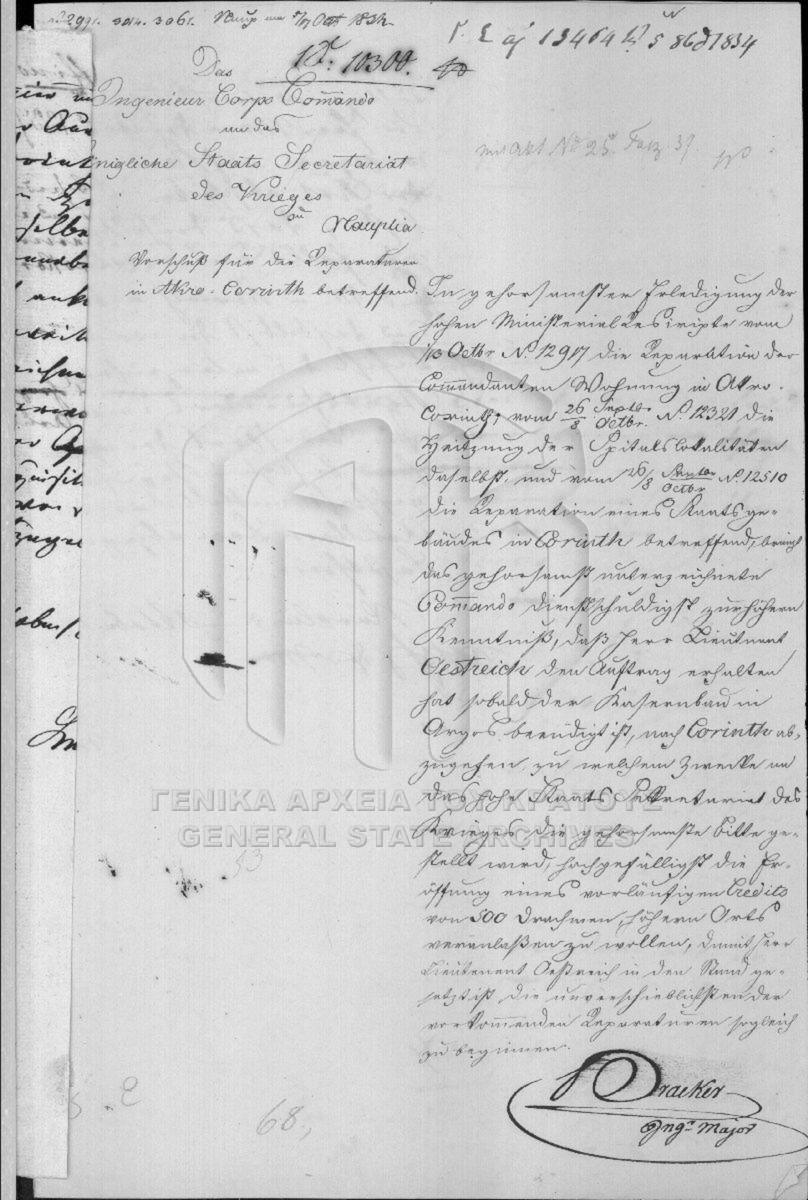 No 2991. 3014. 3061. Nauplia am 5/17 Octbr 1834
Γ. Σ αj 13464 5 86 1834
No: 10300.
Das
Ingenieur Corps Commando
an das
Königliche Staats Secretariat
des Krieges
zu
Nauplia
mit Akt No 25. Fasz 37.
Vorschuß für die Reparaturen
in Akro-Corinth betreffend.
In gehorsamster Erledigung der
hohen Ministerial Rescripte vom
1/13 Octbr No. 12917 die Reparation der
Commandanten Wohnung in Akro-
Corinth; vom 26 Septbr./8 Octbr. No. 12321 die
Heitzung der Spitalslokalitäten
daselbst, und vom 26/8 Septbr/Octbr No. 12510
die Reparation eines Staatsge-
bäudes in Corinth betreffend, bringt
das gehorsamst unterzeichnete
Commando dienstschuldigst zur höhern
Kenntniß, daß Herr Lieutnant
Oestreich den Auftrag erhalten
hat sobald der Kasernbau in
Argos beendigt ist, nach Corinth ab-
zugehen zu welchem Zwecke an
das hohe Staats Sekretariat des
Krieges die gehorsamste Bitte ge-
stellt wird, hochgefälligst die Er-
öffnung eines vorläufigen Credits
von 500 Drachmen, höhern Orts
veranlaßen zu wollen, damit Herr
Lieutenant Oestreich in den Stand ge-
setzt ist die unverschieblichsten der
vorkommenden Reparaturen sogleich
zu beginnen.
Dracker
Ingr. Major
53
68.,
ΓΕΝΙΚΑ ΑΡΧΕΙΑ ΤΟΥ ΚΡΑΤΟΥΣ
GENERAL STATE ARCHIVES